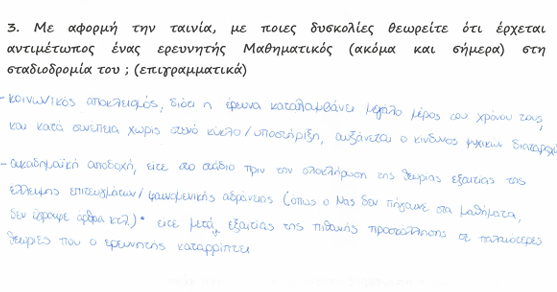 3. Με αφορμή την ταινία, με ποιες δυσκολίες θεωρείτε ότι έρχεται
αντιμέτωπος ένας ερευνητής Μαθηματικός (ακόμα και σήμερα) στη
σταδιοδρομία του ; (επιγραμματικά)
- κοινωνικός αποκλεισμός, διότι η έρευνα καταλαμβάνει μεγάλο μέρος του χρόνου τους,
και κατά συνέπεια χωρίς στενό κύκλο/υποστήριξη, αυξάνεται ο κίνδυνος ψυχικών
- ακαδημαϊκή αποδοχή, είτε στο στάδιο πριν την ολοκλήρωση της θεωρίας εξαιτίας της
έλλειψης επιτευγμάτων/φαινομενικής αδράνειας (όπως ο Nas δεν πήγαινε στα μαθήματα,
δεν έγραφε άρθρα κτλ.)· είτε μετά, εξαιτίας της πιθανής προσκόλλησης σε παλαιότερες
θεωρίες που ο ερευνητής καταρρίπτει